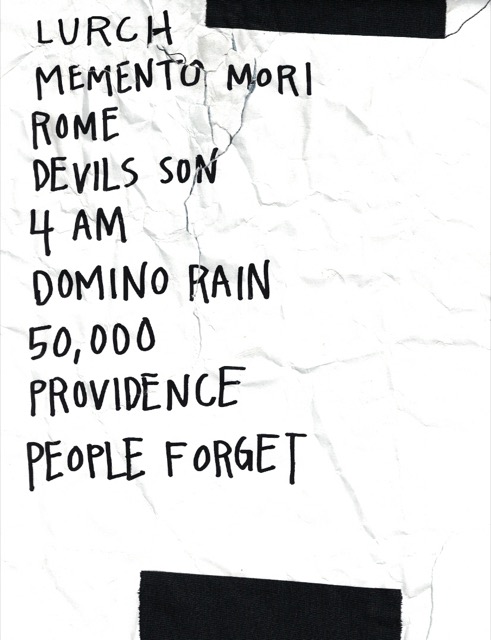 LURCH
MEMENTO MORI
ROME
DEVILS SON
4 AM
DOMINO RAIN
50,000
PROVIDENCE
PEOPLE FORGET